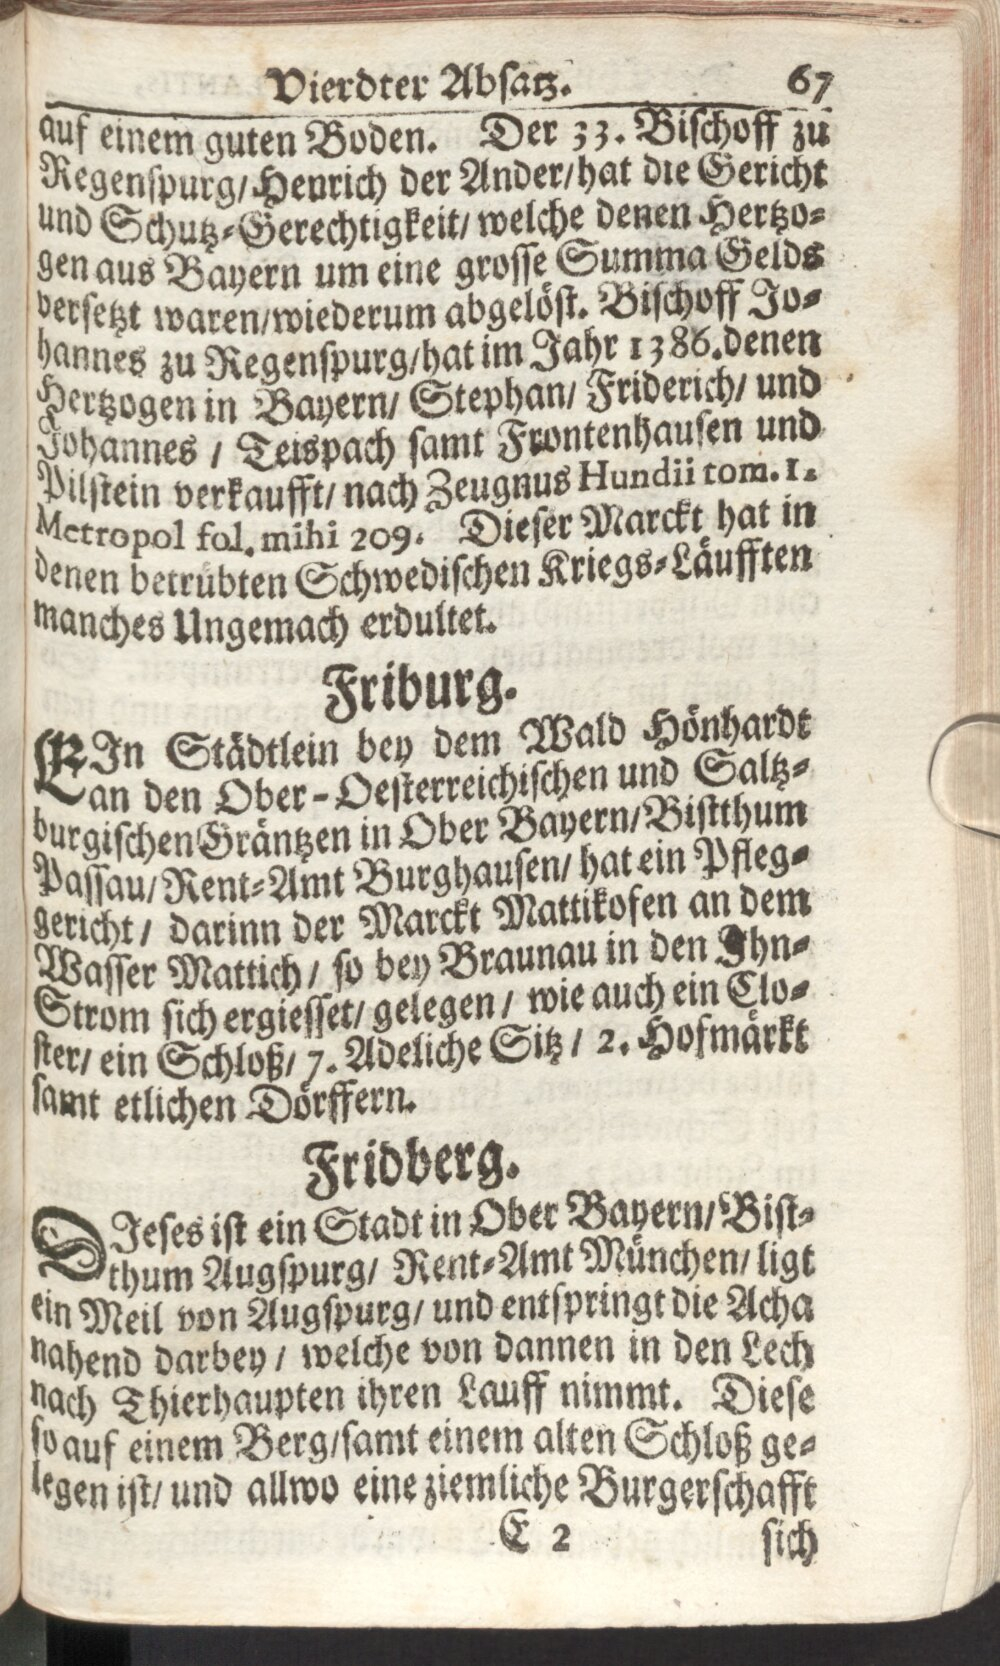 Vierdter Absatz. 67
auf einem guten Boden. Der 33. Bischoff zu
Regenspurg/Henrich der Ander/hat die Gericht
und Schutz-Gerechtigkeit/ welche denen Hertzo-
gen aus Bayern um eine grosse Summa Gelds
versetzt waren/wiederum abgelöst. Bischoff Jo-
hannes zu Regenspurg/hat im Jahr 1386.denen
Hertzogen in Bayern/ Stephan/ Friderich/ und
Johannes / Teispach samt Frontenhausen und
Pilstein verkaufft/ nach Zeugnus Hundii tom. I.
Metropol fol. mihi 209. Dieser Marckt hat in
denen betrübten Schwedischen Kriegs-Läufften
manches Ungemach erdultet.
Friburg.
EIn Städtlein bey dem Wald Hönhardt
an den Ober-Oesterreichischen und Saltz-
burgischen Gräntzen in Ober Bayern/Bistthum
Passau/ Rent-Amt Burghausen/ hat ein Pfleg-
gericht / darinn der Marckt Mattikofen an dem
Wasser Mattich / so bey Braunau in den Ihn-
Strom sich ergiesset/ gelegen / wie auch ein Clo-
ster/ ein Schloß/ 7. Adeliche Sitz / 2. Hofmärkt
samt etlichen Dörffern.
Fridberg.
DIeses ist ein Stadt in Ober Bayern/Bist-
thum Augspurg/ Rent-Amt München/ ligt
ein Meil von Augspurg/ und entspringt die Acha
nahend darbey / welche von dannen in den Lech
nach Thierhaupten ihren Lauff nimmt. Diese
so auf einem Berg/samt einem alten Schloß ge-
legen ist/ und allwo eine ziemliche Burgerschafft
E 2 sich